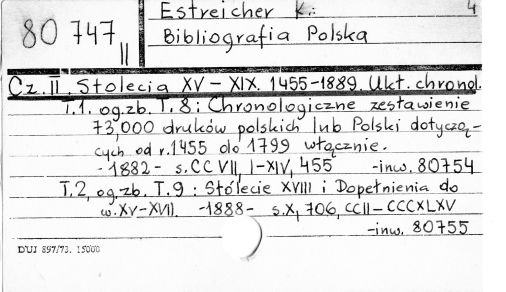 Estreicher K.: 4
80 747 II
Bibliografia Polska
Cz. II. Stolecia XV – XIX. 1455-1889. Ukł. chronol.
T.1. og.zb. T.8 : Chronologiczne zestawienie
73,000 druków polskich lub Polski dotyczą-
cych od r. 1455 do 1799 włącznie.
- 1882 - s. CCVII, I-XIV, 455 -inw. 80754
T.2, og.zb. T.9 : Stólecie XVIII i Dopełnienia do
w. XV-XVII. -1888- s. X, 706, CCII-CCCXLXV
-inw. 80755
DUJ 897/73. 15000